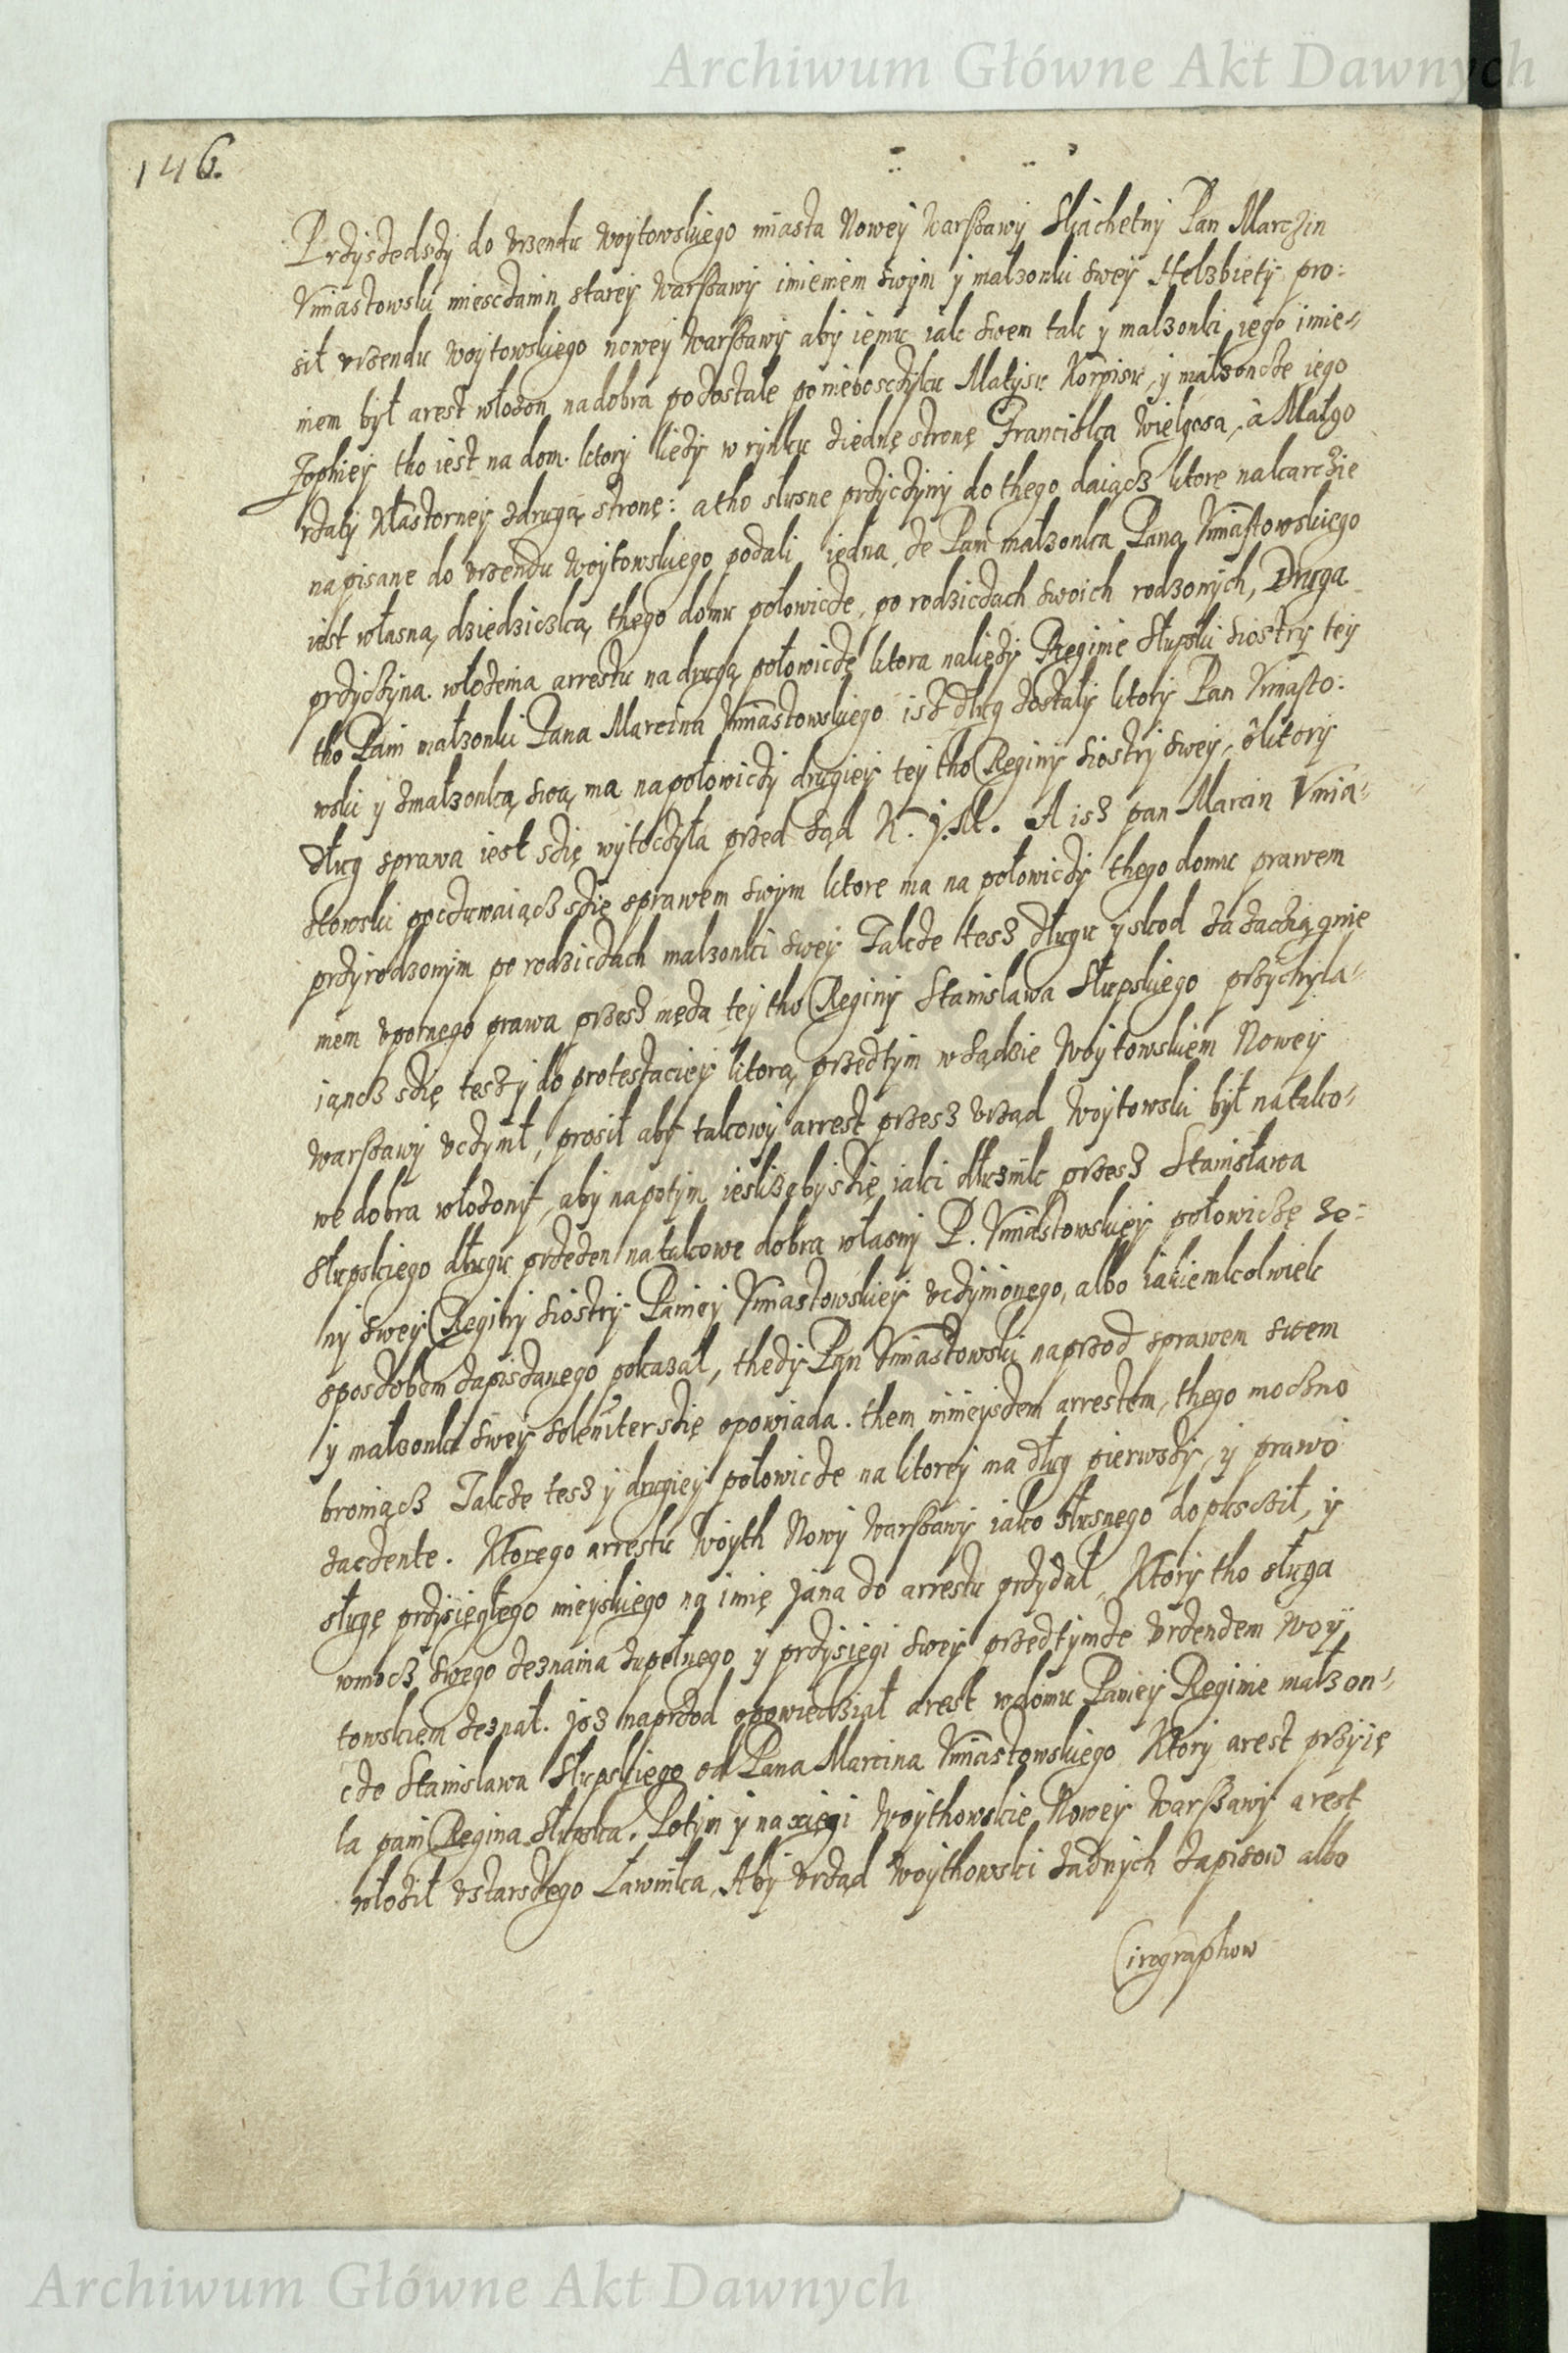 Archiwum Główne Akt Dawnych
146.
Przyszedszy do vrzendu woytowskiego miasta Nowey Warszawy Sliachetny Pan Marczin
Vmiastowski miesczanin starey Warszawy imieniem swym y malzonki swey Helzbiety pro:
sił vrzendu woytowskiego nowey Warszawy aby iemu iak swem tak y malzonki iego imie-
niem był arest włozon na dobra pozostałe po nieboszczyku Matysu Korpisu, y małzoncze iego
Zophiey tho iest na dom ktory liezy w rynku z iednę stronę Franciska Wielgosa, à Małgo
rzaty Klastorney z drugą stronę: a tho slusne przyczyny do thego daiącz ktore na karczie
napisane do vrzendu woytowskiego podali, iedna, ze Pani malzonka Pana Vmiastowskiego
iest własną dziedziczką thego domu połowicze, po rodziczach swoich rodzonych, Druga
przyczyna włozenia arrestu na drugą połowiczę ktora nalieży Reginie Słupski siostry tey
tho Pani małzonki Pana Marcina Vmiastowskiego isz dług zostały ktory Pan Vmiasto:
wski y z małzonką swą ma na połowiczy drugiey tey tho Reginy siostry swey, ô ktory
dług sprawa iest sdię wytoczyła przed sąd K. J. M. A isz pan Marcin Vmia-
stowski poczuwaiącz sdię s prawem swym ktore ma na połowiczy thego domu prawem
przyrodzonym po rodziczach malzonki swey Takze tesz długu y skod za zaciągnie
niem vpornego prawa przesz męża tey tho Reginy Stanislawa Słupskiego przychyla-
iącz sdię tesz y do protestaciey ktorą przedtym w sądzie Woytowskiem Nowey
Warszawy vczynił, prosił aby takowy arrest przesz vrząd woytowski był na tako-
we dobra włozony, aby napotym iesliżby sdię iaki dłuznik przesz Stanisława
Słupskiego długu przezen na takowe dobra własny P. Vmiastowskiey połowiczę żo-
ny swey Reginy siostry Paniey Vmiastowskiey vczynionego, albo iakiemkolwiek
sposzobem zapiszanego pokazał, thedy Pan Vmiastowski naprzod s prawem swem
y małzonki swey soleniter sdię opowiada. them ninieyszem arrestem, thego moczno
broniącz Takze tesz y drugiey połowicze na ktorey ma dług pierwszy, y prawo
zaczente. Ktorego arrestu Woyth Nowy Warszawy iako słusnego dopuscził, y
sługę przysięgłego mieyskiego na imię Jana do arrestu przydał, Ktory tho sługa
w mocz swego zeznania zupełnego y przysięgi swey przed tymze vrzendem woy
towskiem zeznał. Jsz naprzod opowiedział arest w domu Paniey Reginie małzon-
cze Stanisława Słupskiego od Pana Marcina Vmiastowskiego Ktory arest przyię
ła pani Regina Słupska. Potym y na xięgi Woythowskie Nowey Warszawy arest
włozil v starszego Ławnika, Aby vrząd Woythowski zadnych zapisow albo
Cirographow
Archiwum Główne Akt Dawnych